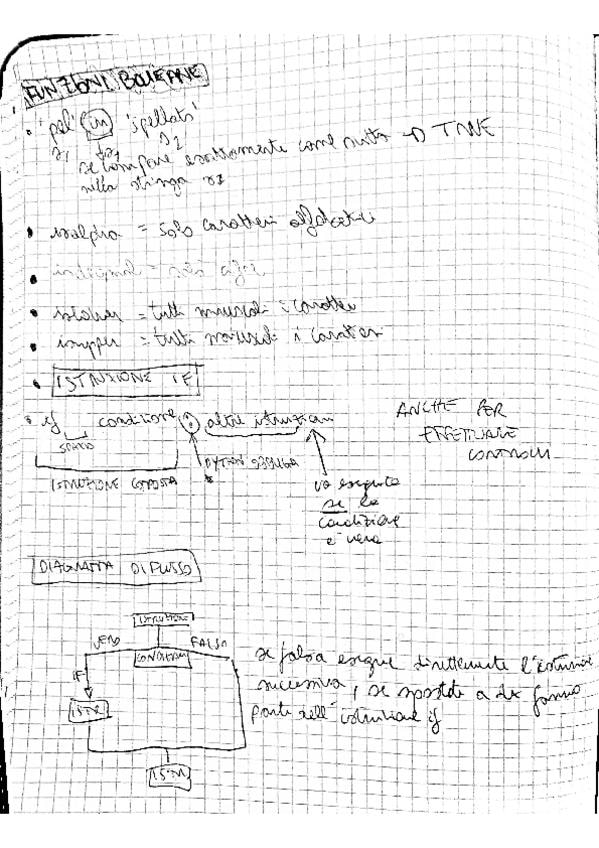 FUNZIONI BOLEANE
• 'pel' in 'spellato'
s1 s2
se compare esattamente come scritta → TRUE
nella stringa s2
• isalpha = solo caratteri alfabetici
• isdecimal = solo cifre
• islower = tutti minuscoli i caratteri
• isupper = tutti maiuscoli i caratteri
• ISTRUZIONE IF
• if condizione : altre istruzioni
SPAZIO
ISTRUZIONE COMPOSTA
PYTHON
va eseguita
se la
condizione
è vera
ANCHE PER
EFFETTUARE
CONTROLLI
DIAGRAMMA DI FLUSSO
ISTRUZIONE
VERO FALSO
CONDIZIONE
IF
ISTR
ISTR
se falsa esegue direttamente l'istruzione
successiva, se spostate a dx fanno
parte dell'istruzione if